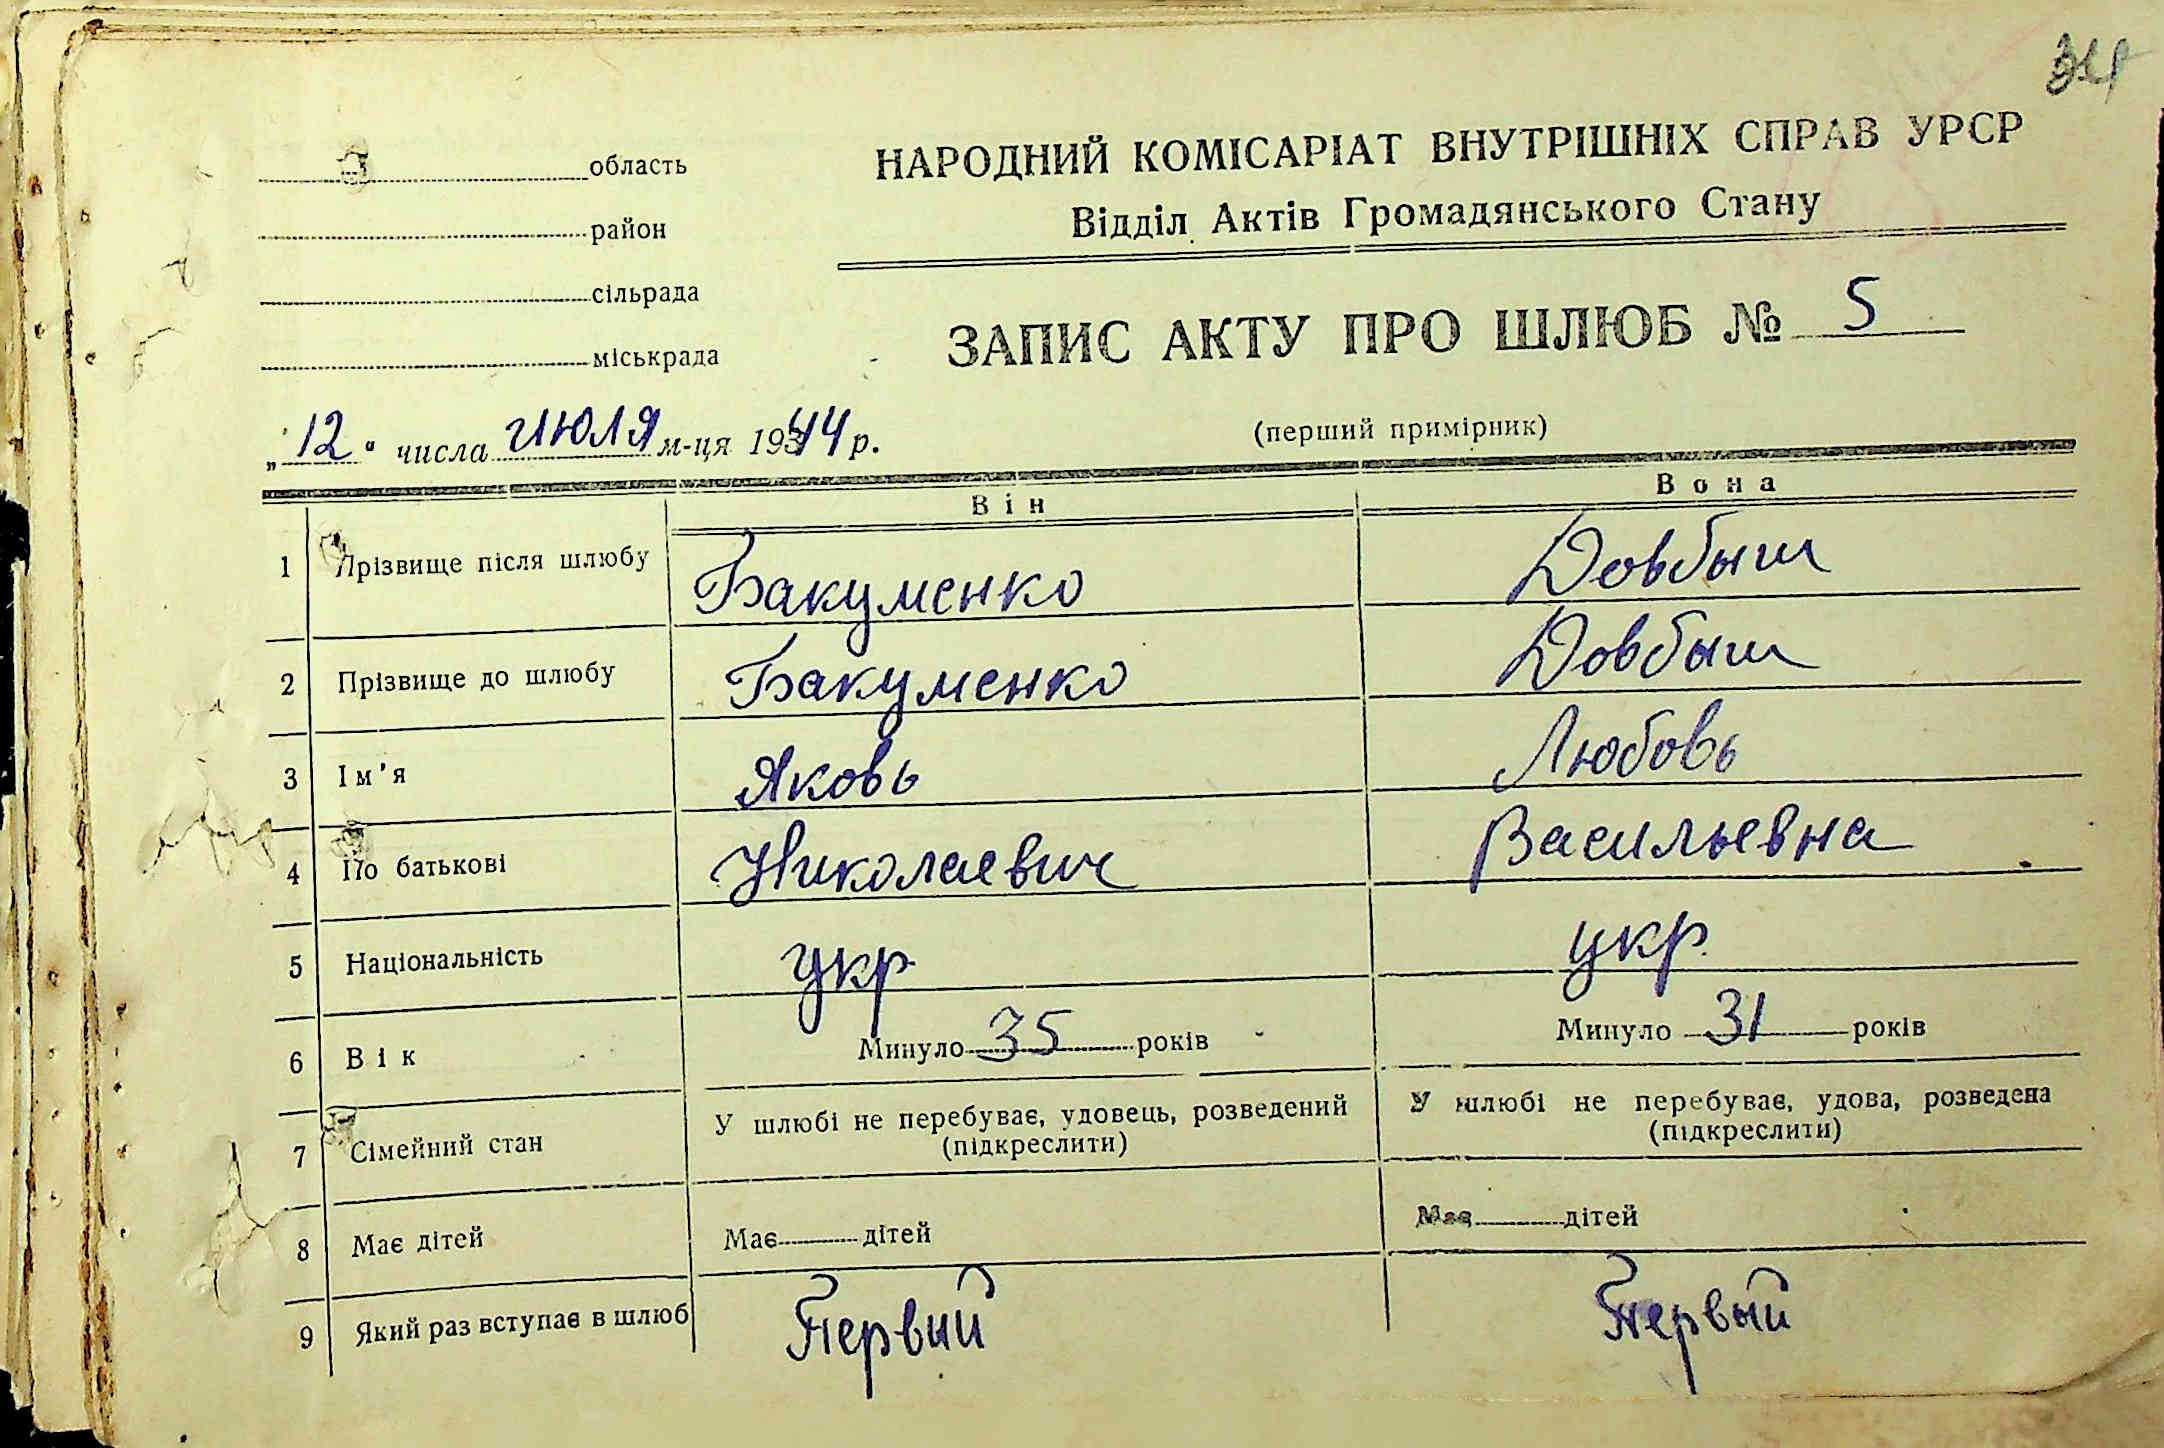 34
область
район
сільрада
міськрада
НАРОДНИЙ КОМІСАРІАТ ВНУТРІШНІХ СПРАВ УРСР
Відділ Актів Громадянського Стану
ЗАПИС АКТУ ПРО ШЛЮБ № 5
(перший примірник)
„12“ числа июля м-ця 1944 р.
Він Вона
1 Прізвище після шлюбу Бакуменко Довбыш
2 Прізвище до шлюбу Бакуменко Довбыш
3 Ім'я Яковь Любовь
4 По батькові Николаевич Васильевна
5 Національність укр укр.
6 Вік Минуло 35 років Минуло 31 років
7 Сімейний стан У шлюбі не перебуває, удовець, розведений (підкреслити) У шлюбі не перебуває, удова, розведена (підкреслити)
8 Має дітей Має дітей Має дітей
9 Який раз вступає в шлюб Первий Первый